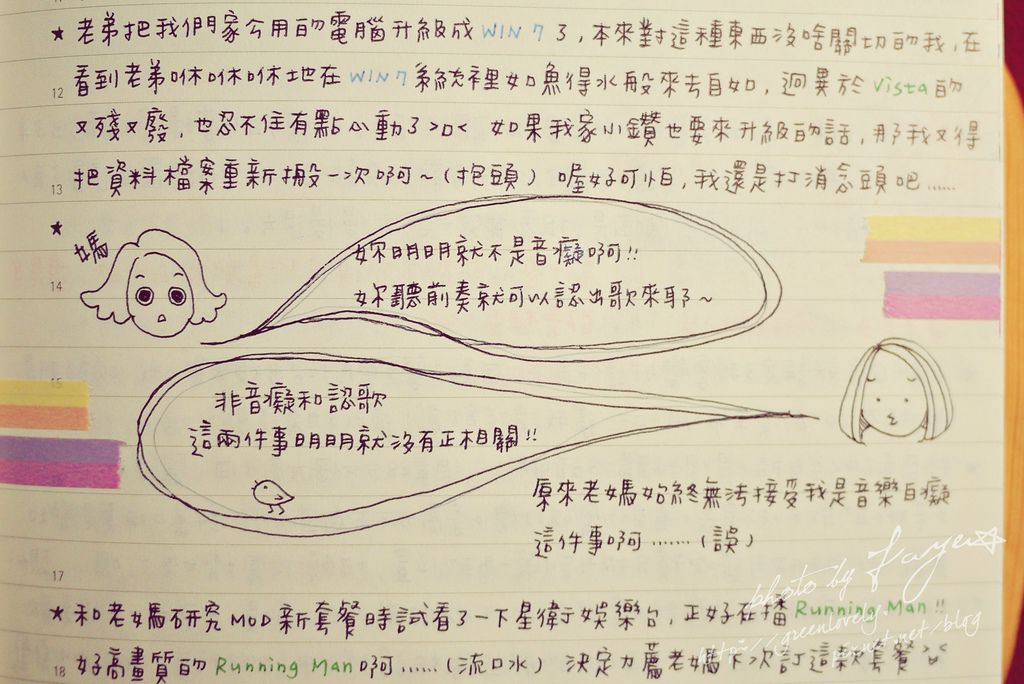 ★ 老弟把我們家公用的電腦升級成 WIN 7 了，本來對這種東西沒啥關切的我，在
12 看到老弟咻咻咻地在 WIN7 系統裡如魚得水般來去自如，迥異於 Vista 的
又殘又廢，也忍不住有點心動了>口< 如果我家小鑽也要來升級的話，那我又得
13 把資料檔案重新搬一次啊~(抱頭) 喔好可怕，我還是打消念頭吧……
★
媽
妳明明就不是音癡啊!!
14
妳聽前奏就可以認出歌來耶~
15
非音癡和認歌
這兩件事明明就沒有正相關!!
原來老媽始終無法接受我是音樂白癡
這件事啊……(誤)
photo by Faye
17
★ 和老媽研究 MOD 新套餐時試看了一下星衛子娛樂台，正好在播 Running Man!!
http://greenlovely.pixnet.net/blog
18 好高畫質的 Running Man 啊……(流口水) 決定力薦老媽下次訂這款套餐